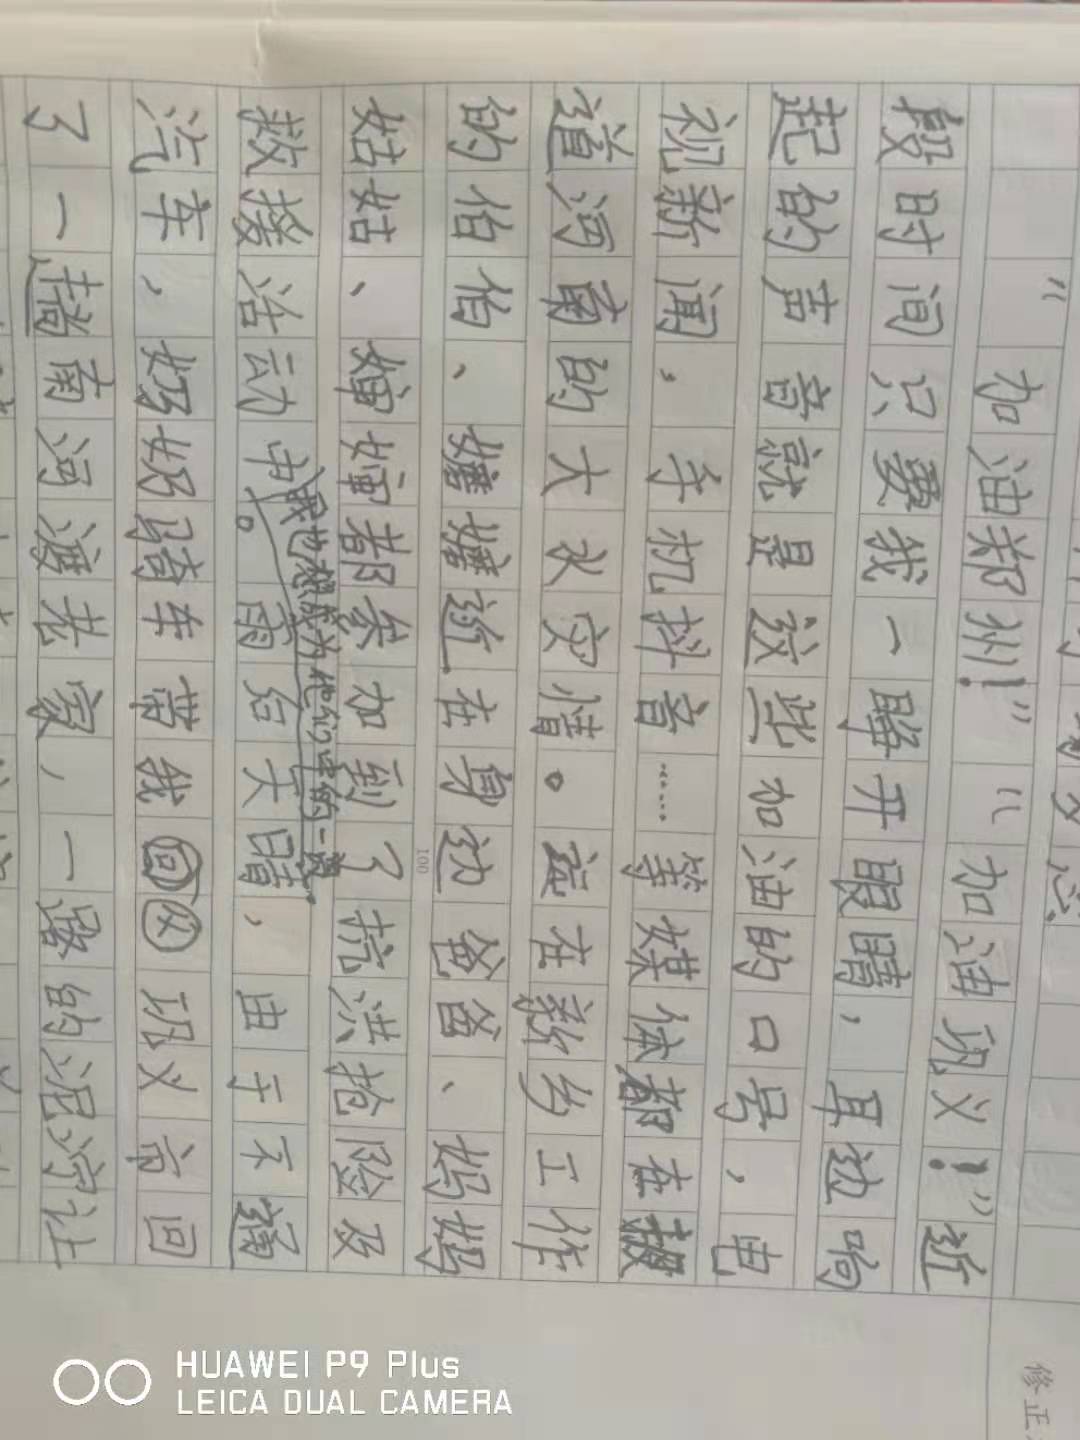 "加油郑州!""加油巩义!"近
段时间只要我一睁开眼睛,耳边响
起的声音就是这些加油的口号,电
视新闻,手机抖音……等媒体都在报
道河南的大水灾情。远在新乡工作
的伯伯、嬸嬸近在身边爸爸、妈妈
姑姑、婶婶都参加到了抗洪抢险及
救援活动中。雨后天晴,由于不通
我也想成为他们中的一员。
汽车,奶奶骑车带我回巩义市回
了一趟南河渡老家,一路的泥泞让
100
修正
HUAWEI P9 Plus
LEICA DUAL CAMERA